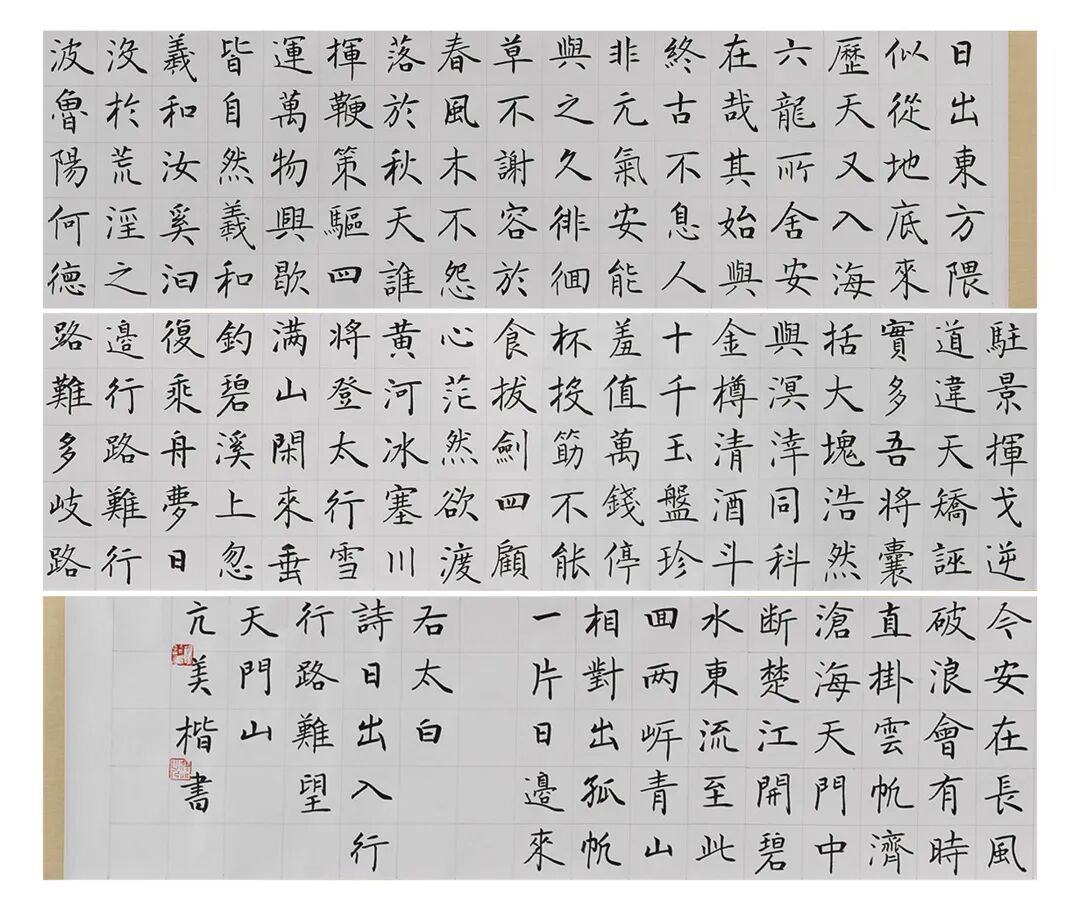 日出東方隈
似從地底來
歷天又入海
六龍所舍安
在哉其始與
終古不息人
非元氣安能
與之久徘徊
草不謝容於
春風木不怨
落於秋天誰
揮鞭策驅四
運萬物興歇
皆自然羲和
羲和汝奚汩
沒於荒淫之
波魯陽何德
駐景揮戈逆
道違天矯誣
實多吾將囊
括大塊浩然
與溟涬同科
金樽清酒斗
十千玉盤珍
羞值萬錢停
杯投筯不能
食拔劍四顧
心茫然欲渡
黃河冰塞川
將登太行雪
满山閑來垂
釣碧溪上忽
復乘舟夢日
邊行路難行
路難多岐路
今安在長風
破浪會有時
直掛雲帆濟
滄海天門中
断楚江開碧
水東流至此
回两岸青山
相對出孤帆
一片日邊來
右太白
詩日出入行
行路難望
天門山
亢美楷書